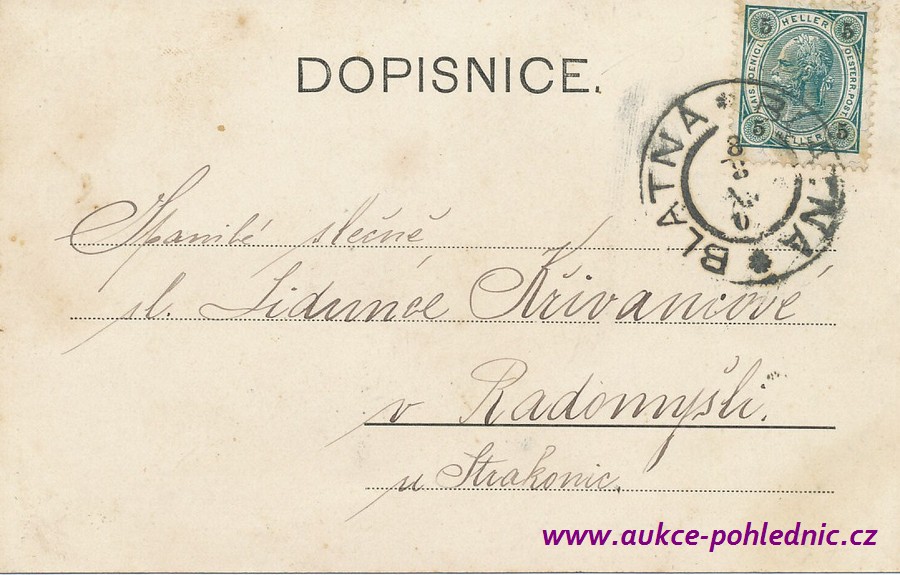 DOPISNICE.
5 HELLER 5
KAIS. KOENIGL. OESTERR. POST.
5 HELLER 5
BLATNA
BLATNA
slečně,
sl. Lidunce Křivancové
v Radomyšli.
u Strakonic.
www.aukce-pohlednic.cz